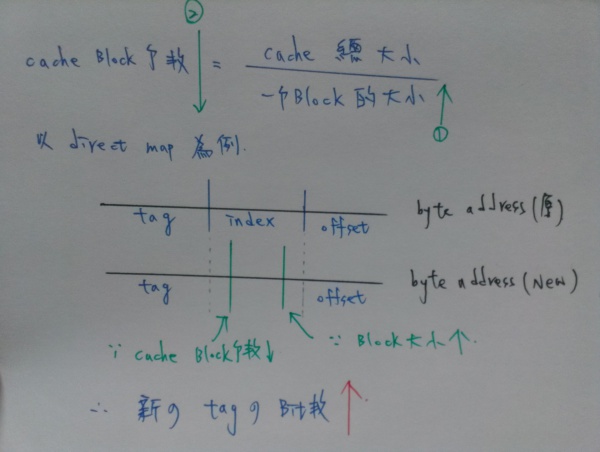 ②
cache Block 个数 = cache 總大小
一个Block的大小
①
以 direct map 為例.
tag index offset byte address(原)
tag offset byte address(New)
∵ cache Block个数↓ ∵ Block大小↑.
∴ 新の tagの Bit数 ↑.